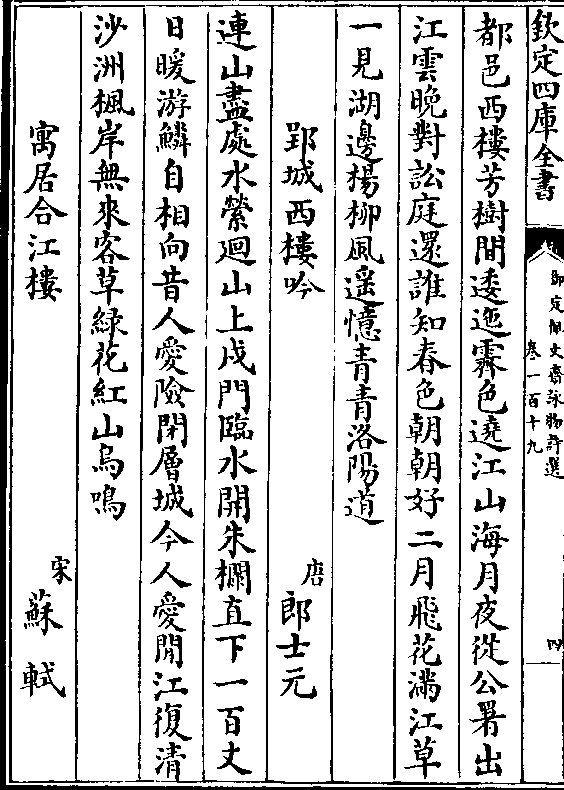 欽定四庫全書
御定佩文齋詠物詩選
卷一百十九
四
都邑西樓芳樹間逶迤霽色遶江山海月夜從公署出
江雲晚對訟庭還誰知春色朝朝好二月飛花滿江草
一見湖邊楊柳風遥憶青青洛陽道
郢城西樓吟
唐
郎士元
連山盡處水縈迴山上戍門臨水開朱欄直下一百丈
日暖游鱗自相向昔人愛險閉層城今人愛閒江復清
沙洲楓岸無來客草緑花紅山鳥鳴
寓居合江樓
宋
蘇軾